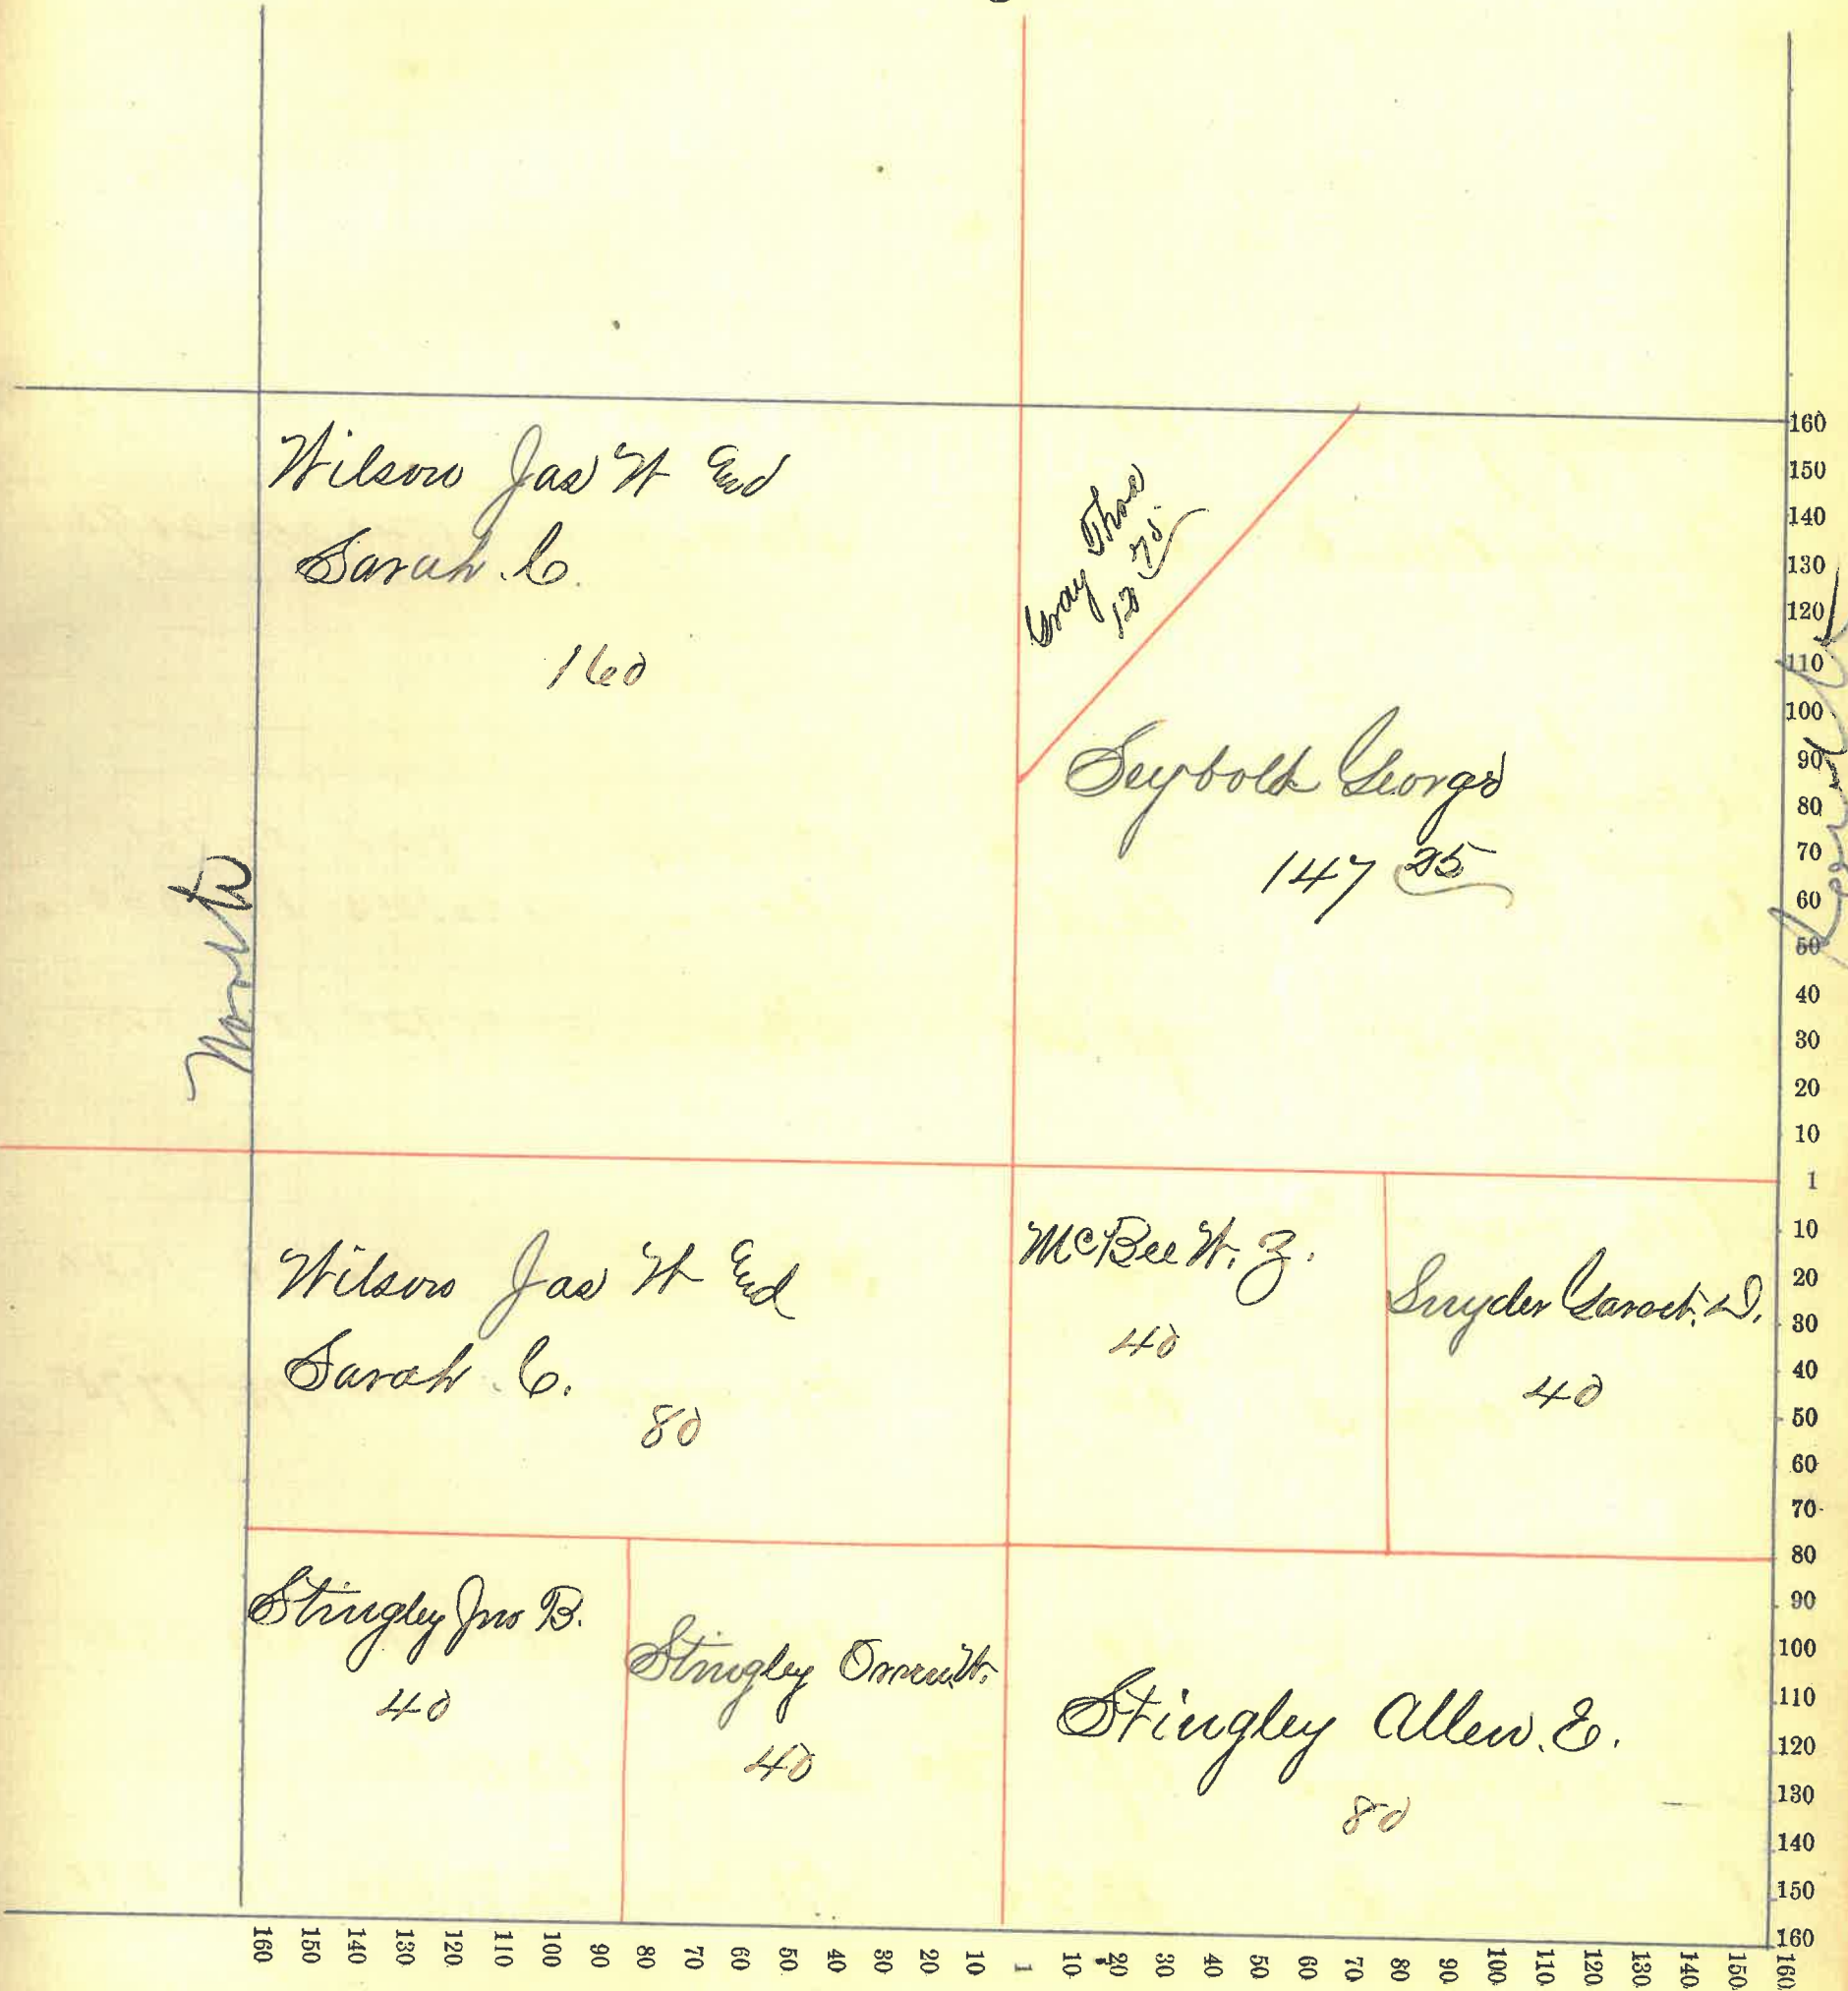 Wilson Jas W End
Sarah. C.
160
Gray Thos
12 75
Seybold George
147 25
North
South
Wilson Jas W End
Sarah. C.
80
McBee W. Z.
40
Snyder D.
40
Stingley Jno B.
40
Stingley W.
40
Stingley Allen. E.
80
160
150
140
130
120
110
100
90
80
70
60
50
40
30
20
10
1
10
20
30
40
50
60
70
80
90
100
110
120
130
140
150
160
160 150 140 130 120 110 100 90 80 70 60 50 40 30 20 10 1 10 20 30 40 50 60 70 80 90 100 110 120 130 140 150 160